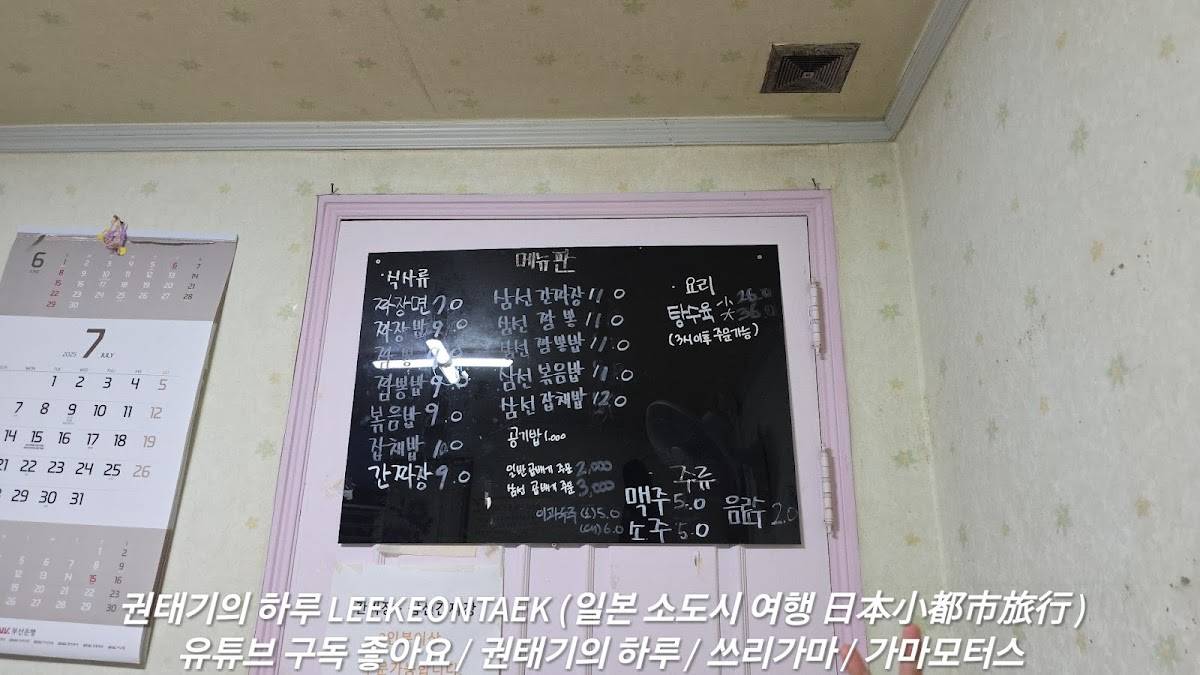 메뉴판
·식사류
짜장면 7.0
짜장밥 9.0
짬뽕밥 9.0
볶음밥 9.0
잡채밥
간짜장 9.0
삼선 간짜장 11.0
삼선 짬뽕 11.0
삼선 짬뽕밥 11.0
삼선 볶음밥 11.0
삼선 잡채밥 12.0
공기밥 1.000
일반 곱배기 주문 2,000
삼선 곱배기 주문 3,000
이과두주 (小) 5.0
6.0
· 요리
탕수육 小 26.0
大 36.0
(3시 이후 주문가능)
· 주류
맥주 5.0
소주 5.0
음료수 2.0
6
1 2 3 4 5 6 7
8 9 10 11 12 13 14
15 16 17 18 19 20 21
22 23 24 25 26 27 28
29 30
2025 7 JULY
1 2 3 4 5
7 8 9 10 11 12
14 15 16 17 18 19
21 22 23 24 25 26
28 29 30 31
부산은행
권태기의 하루 LEEKEONTAEK ( 일본 소도시 여행 日本小都市旅行 )
유튜브 구독 좋아요 / 권태기의 하루 / 쓰리가마 / 가마모터스